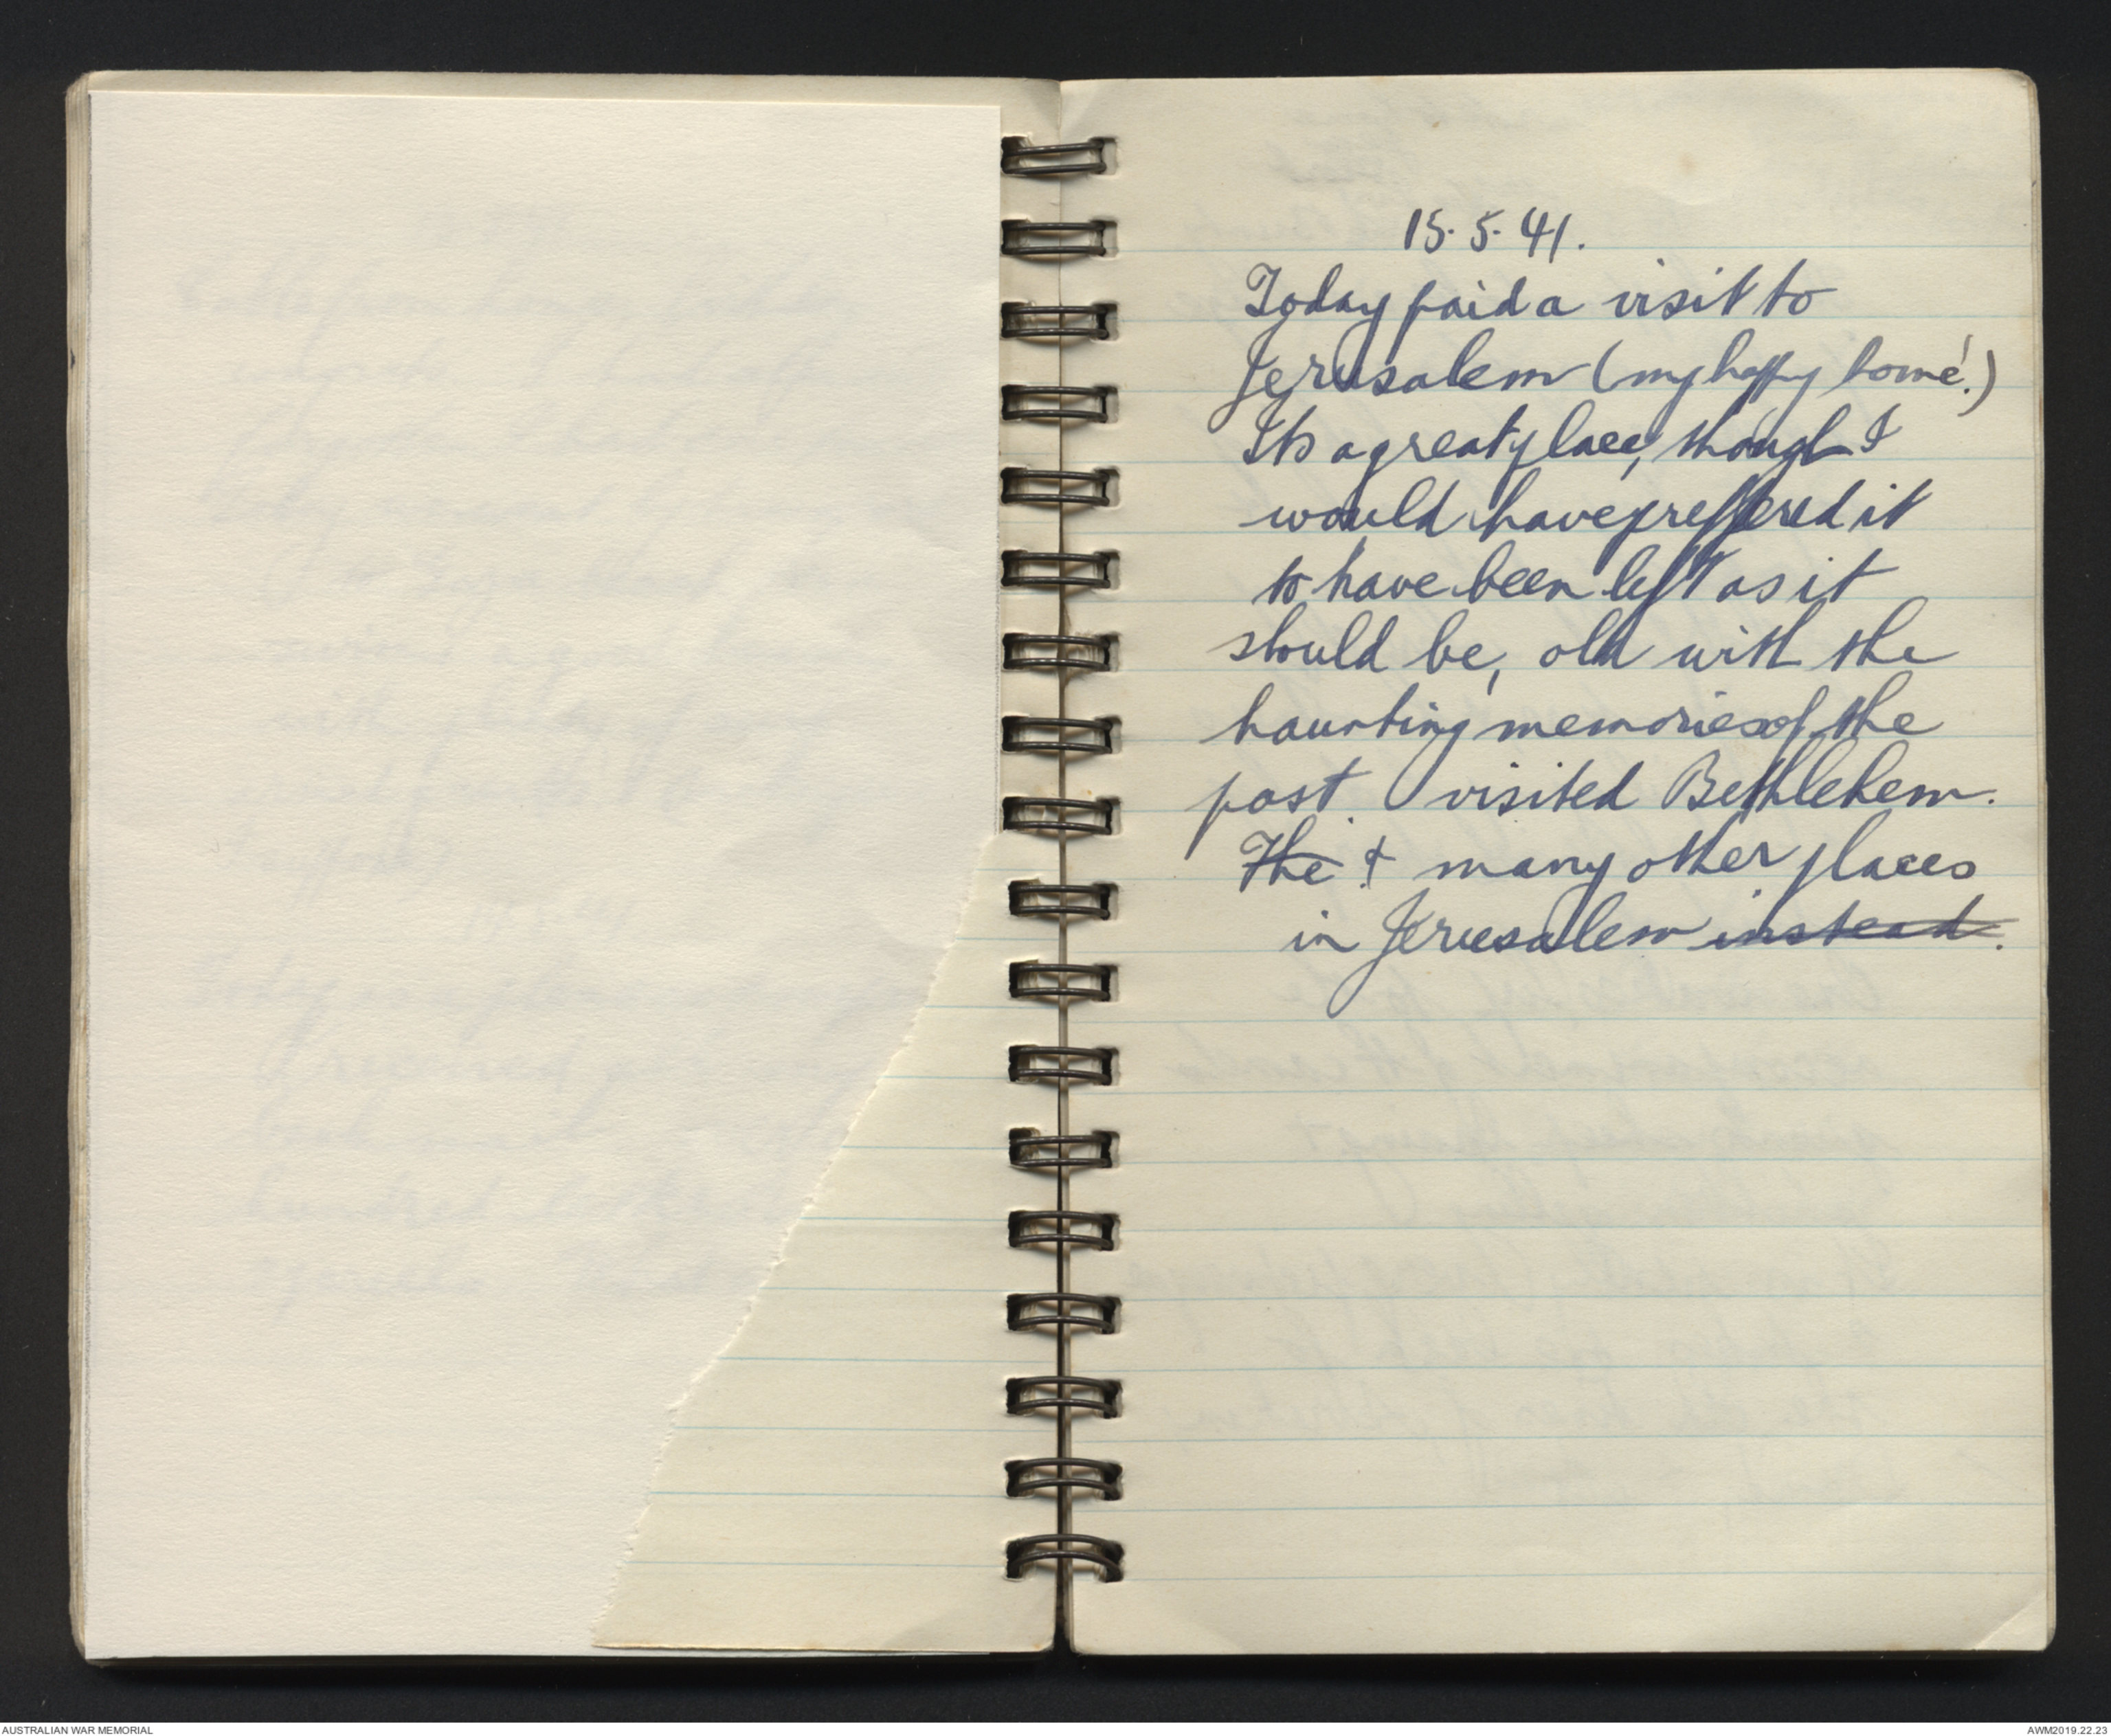 15.5.41.
Today paid a visit to
Jerusalem (my happy home!)
Its a great place, though I
would have preffered it
to have been left as it
should be, old with the
haunting memories of the
past. visited Bethlehem.
The & many other places
in Jerusalem instead.
AUSTRALIAN WAR MEMORIAL
AWM2019.22.23